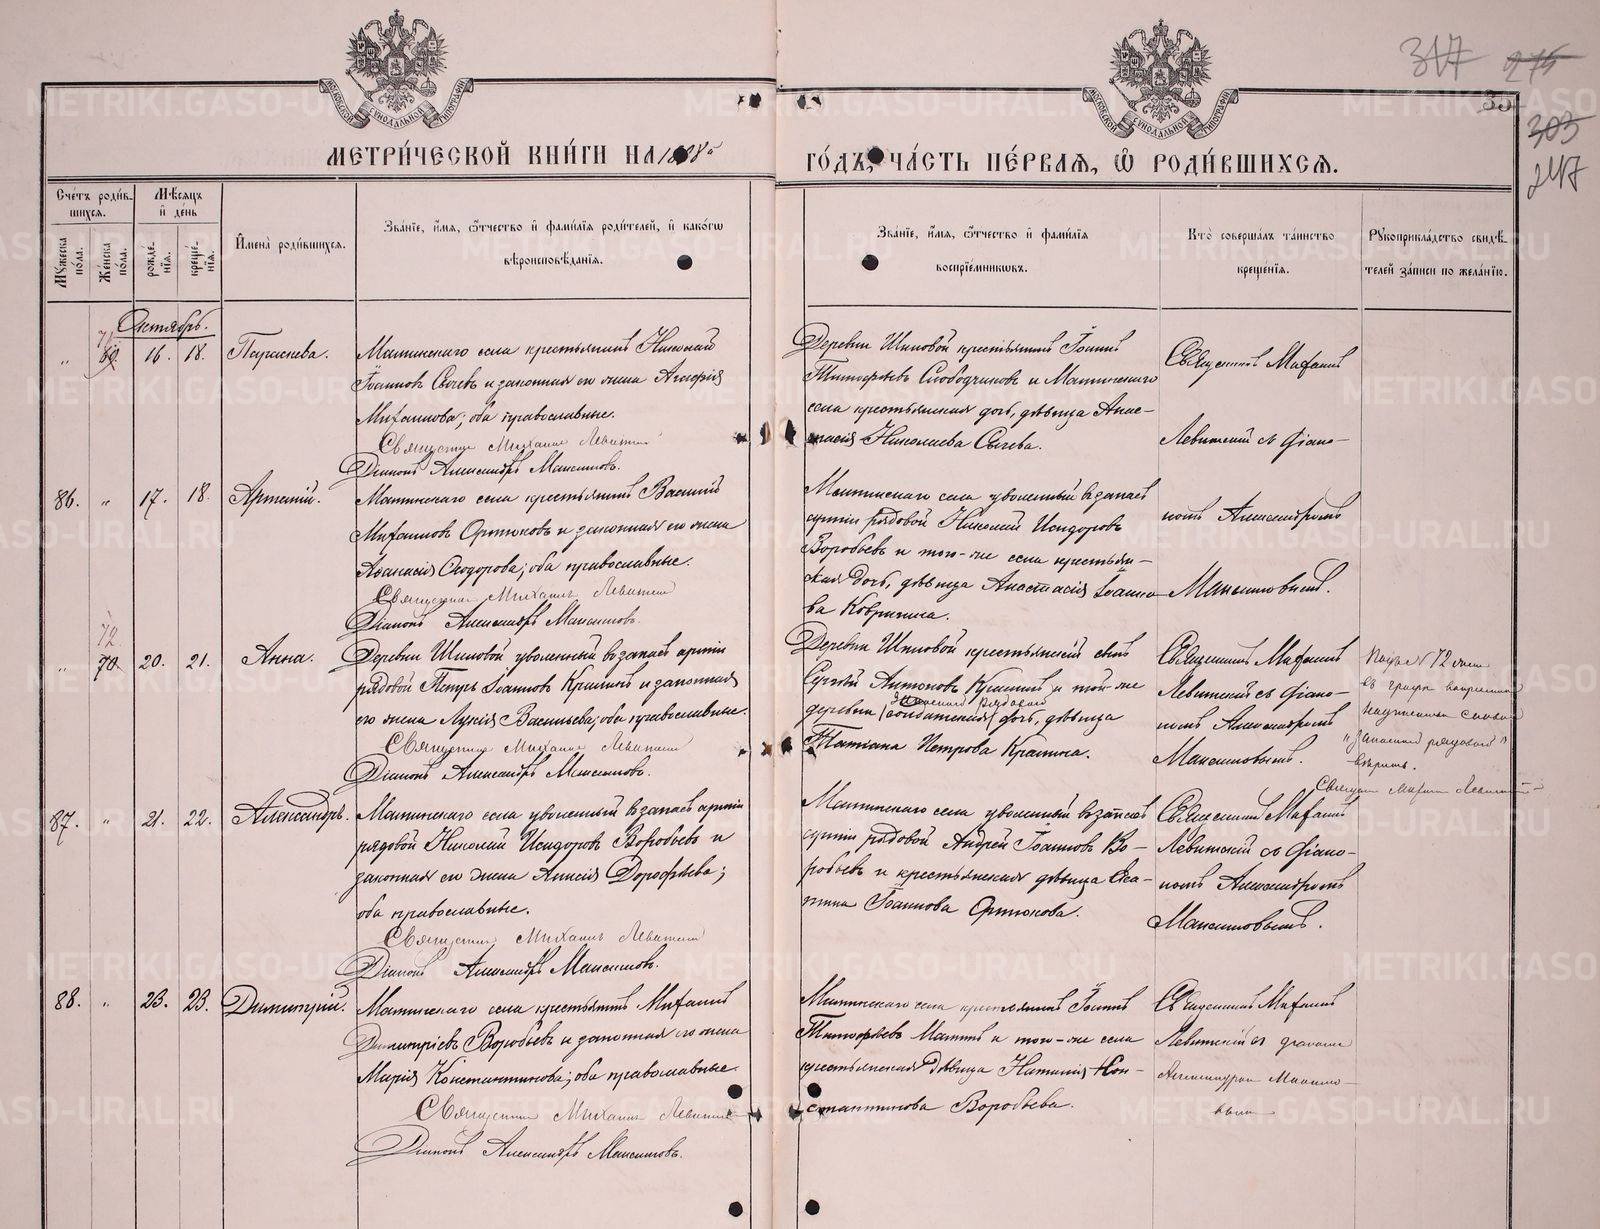 317 275
35
303
247
МОСКОВСКОЙ СУНОДАЛЬНОЙ ТИПОГРАФІИ
МОСКОВСКОЙ СУНОДАЛЬНОЙ ТИПОГРАФІИ
МЕТРИ́ЧЕСКОЙ КНИ́ГИ НА 1888й
ГО́ДЪ, ЧА́СТЬ ПЕ́РВАѦ, Ѿ РОДИ́ВШИХСѦ.
Сче́тъ роди́в-
шихсѧ.
Мꙋ́жеска по́ла.
Же́нска по́ла.
Мѣ́сѧцъ
и҆ де́нь
рожде́-
нїѧ.
креще́-
нїѧ.
И҆мена̀ роди́вшихсѧ.
Зва́нїе, и҆́мѧ, ѻ҆́тчество и҆ фами́лїѧ роди́телей, и҆ како́гѡ
вѣроисповѣ́данїѧ.
Зва́нїе, и҆́мѧ, ѻ҆́тчество и҆ фами́лїѧ
воспрїе́мниковъ.
Кто̀ соверша́лъ та́инство
креще́нїѧ.
Рꙋкоприкла́дство свидѣ́-
телей за́писи по жела́нїю.
Октябрь.
„ 69 71 16. 18. Параскева.
Мамінскаго села крестьянинъ Николай
Іоанновъ Сычевъ и законная его жена Агафія
Михаилова; оба православные.
Священникъ Михаилъ Левитскій
Діаконъ Александръ Максимовъ.
Деревни Шиповой крестьянинъ Іоаннъ
Тимофѣевъ Слободчиковъ и Мамінскаго
села крестьянская дочь, дѣвица Анас-
тасія Николаева Сычева.
Священникъ Михаилъ
Левитскій съ діако-
86. „ 17. 18. Артемій.
Мамінскаго села крестьянинъ Василій
Михаиловъ Ортюковъ и законная его жена
Афанасія Ѳеодорова; оба православные.
Священникъ Михаилъ Левитскій
Діаконъ Александръ Максимовъ.
Мамінскаго села уволенный въ запасъ
арміи рядовой Николай Исидоровъ
Воробьевъ и того-же села крестьян-
ская дочь, дѣвица Анастасія Іоанно-
ва Ковригина.
номъ Александромъ
Максимовымъ.
„ 70 72 20. 21. Анна.
Деревни Шиповой уволенный въ запасъ арміи
рядовой Петръ Іоанновъ Крашинъ и законная
его жена Лукія Васильева; оба православные.
Священникъ Михаилъ Левитскій
Діаконъ Александръ Максимовъ.
Деревни Шиповой крестьянскій сынъ
Сергѣй Антоновъ Крашинъ и той-же
запаснаго рядоваго
деревни (солдатская) дочь, дѣвица
Татіана Петрова Крашина.
Священникъ Михаилъ
Левитскій съ діако-
номъ Александромъ
Максимовымъ.
въ графѣ
"запаснаго рядоваго"
вѣрить.
Священникъ Михаилъ Левитскій
87. „ 21. 22. Александръ.
Мамінскаго села уволенный въ запасъ арміи
рядовой Николай Исидоровъ Воробьевъ и
законная его жена Анисія Дорофѣева;
оба православные.
Священникъ Михаилъ Левитскій
Діаконъ Александръ Максимовъ.
Мамінскаго села уволенный въ запасъ
арміи рядовой Андрей Іоанновъ Во-
робьевъ и крестьянская дѣвица Ека-
терина Іоаннова Ортюкова.
Священникъ Михаилъ
Левитскій съ діако-
номъ Александромъ
Максимовымъ.
88. „ 23. 23. Димитрій.
Мамінскаго села крестьянинъ Михаилъ
Димитріевъ Воробьевъ и законная его жена
Марія Константинова; оба православные.
Священникъ Михаилъ Левитскій
Діаконъ Александръ Максимовъ.
Мамінскаго села крестьянинъ Іоаннъ
Тимофѣевъ Маминъ и того-же села
крестьянская дѣвица Наталія Кон-
стантинова Воробьева.
Священникъ Михаилъ
Левитскій съ діакономъ
Александромъ Максимо-
вымъ
METRIKI.GASO-URAL.RU